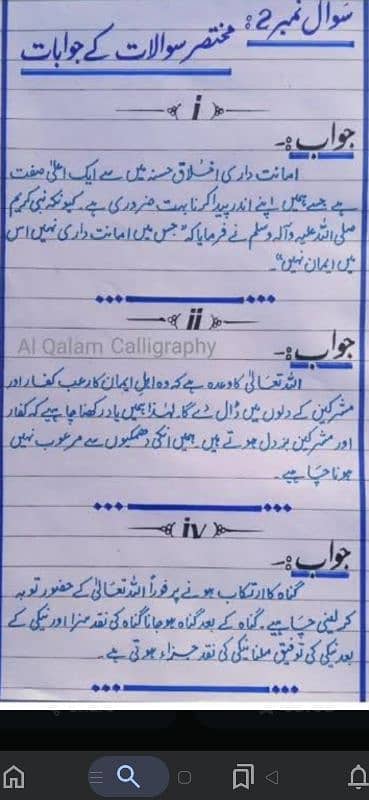 سوال نمبر 2:
مختصر سوالات کے جوابات
i
جواب:-
امانت داری اخلاق حسنہ میں سے ایک اعلیٰ صفت
ہے جسے ہمیں اپنے اندر پیدا کرنا بہت ضروری ہے۔ کیونکہ نبی کریم
صلی اللہ علیہ وآلہ وسلم نے فرمایا کہ "جس میں امانت داری نہیں اس
میں ایمان نہیں"۔
ii
Al Qalam Calligraphy
جواب:-
اللہ تعالیٰ کا وعدہ ہے کہ وہ اہل ایمان کا رعب کفار اور
مشرکین کے دلوں میں ڈال دے گا۔ لہٰذا ہمیں یاد رکھنا چاہیے کہ کفار
اور مشرکین بزدل ہوتے ہیں۔ ہمیں انکی دھمکیوں سے مرعوب نہیں
ہونا چاہیے۔
iv
جواب:-
گناہ کا ارتکاب ہونے پر فوراً اللہ تعالیٰ کے حضور توبہ
کر لینی چاہیے۔ گناہ کے بعد گناہ ہو جانا گناہ کی نقد سزا اور نیکی کے
بعد نیکی کی توفیق ملنا نیکی کی نقد جزاء ہوتی ہے۔